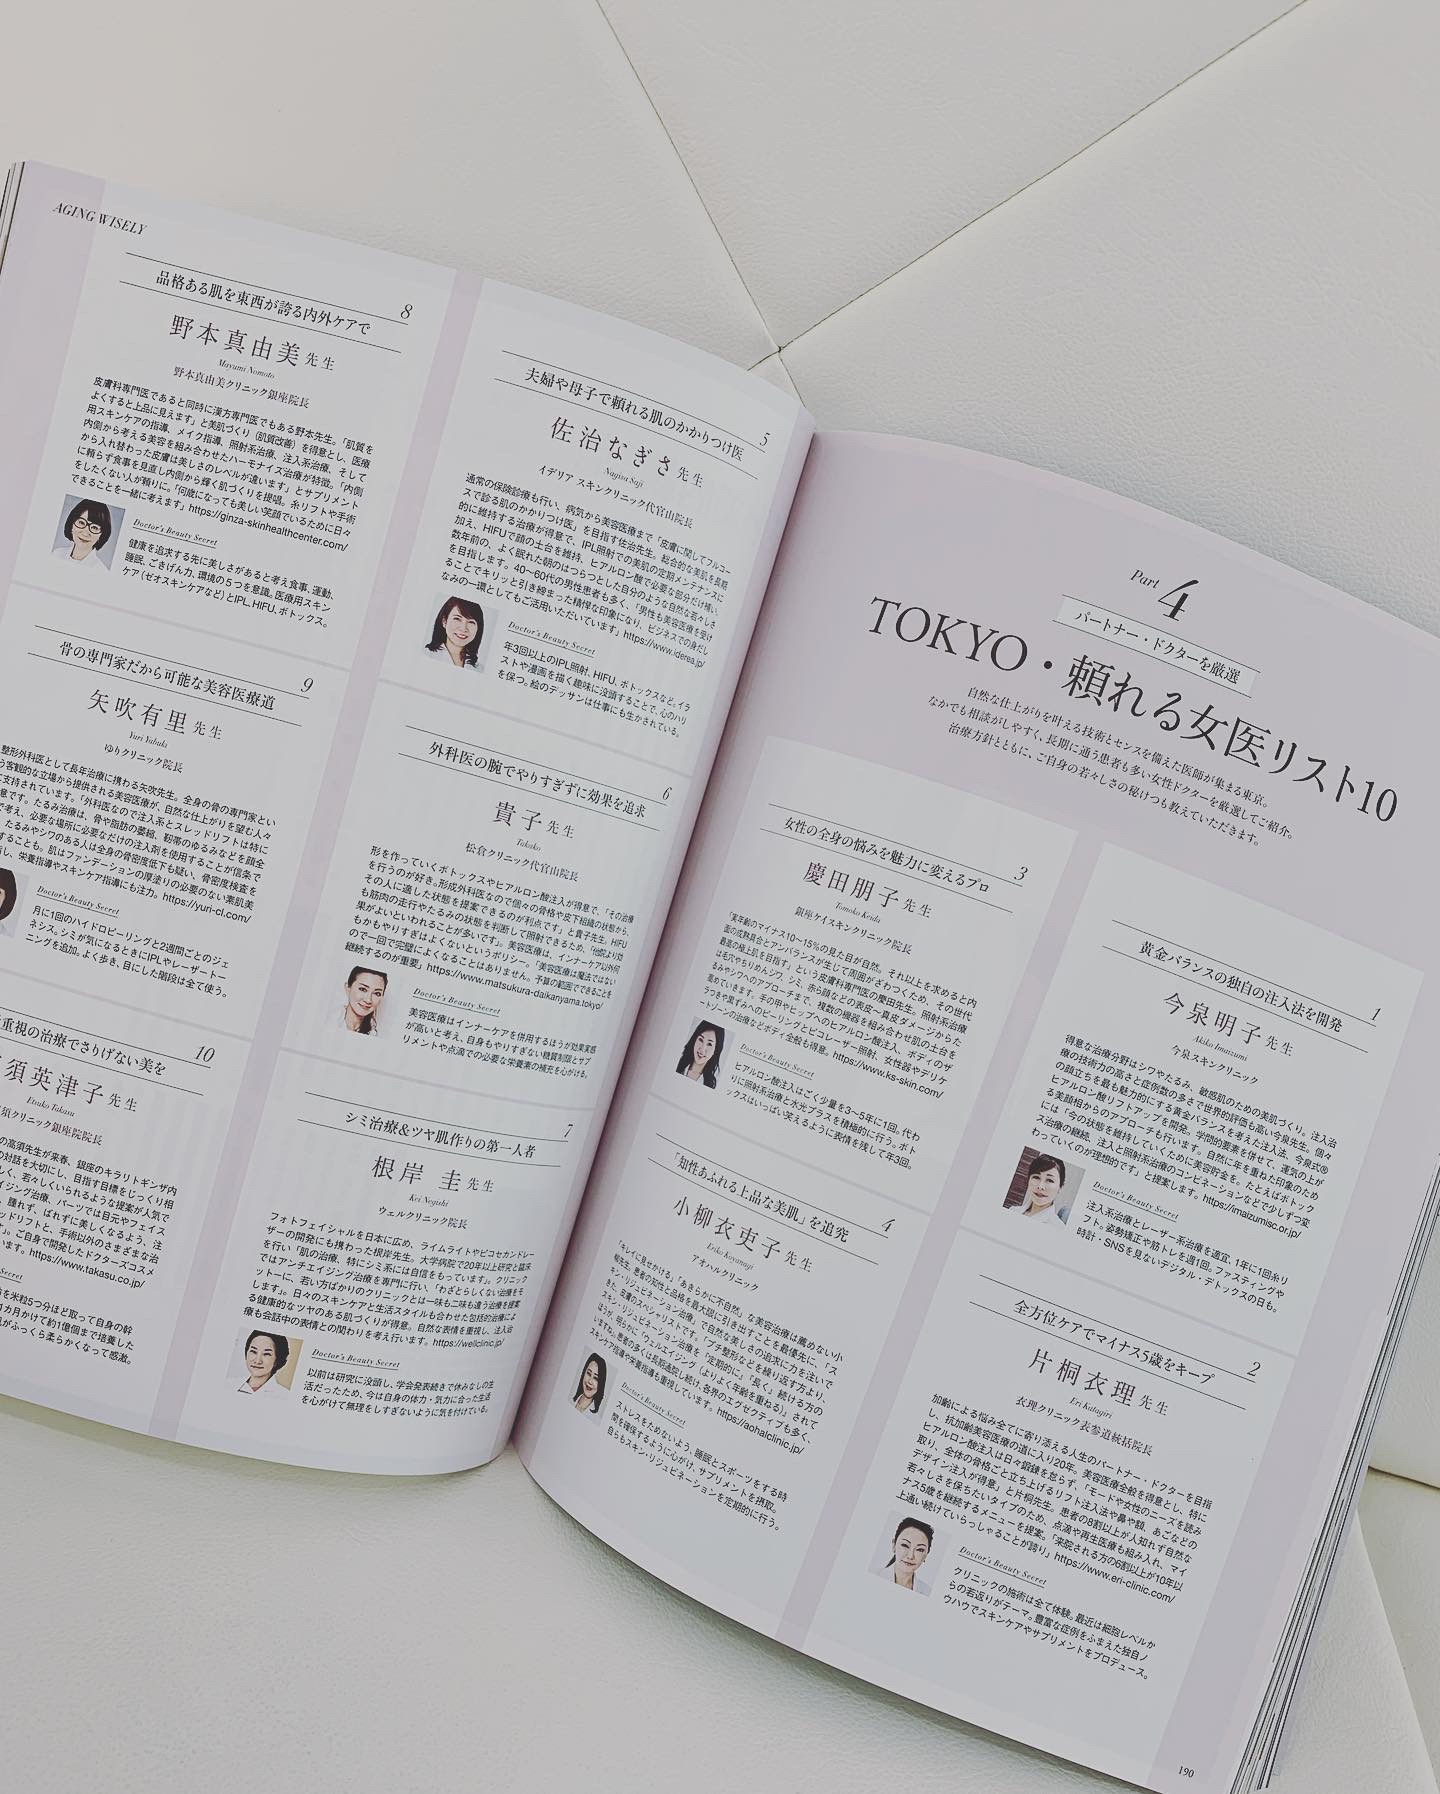 Part 4
パートナー・ドクターを厳選
TOKYO・頼れる女医リスト10
自然な仕上がりを叶える技術とセンスを備えた医師が集まる東京。
なかでも相談がしやすく、長期に通う患者も多い女性ドクターを厳選してご紹介。
治療方針とともに、ご自身の若々しさの秘けつも教えていただきます。
1
黄金バランスの独自の注入法を開発
今泉明子先生
Akiko Imaizumi
今泉スキンクリニック
得意な治療分野はシワやたるみ、敏感肌のための美肌づくり。注入治
療の技術力の高さと症例数の多さで世界的評価も高い今泉先生。個々
の顔立ちを最も魅力的にする黄金バランスを考えた注入法、今泉式®
ヒアルロン酸リフトアップを開発。学問的要素を併せて、運気の上が
る美顔相からのアプローチも行います。自然に年を重ねた印象のため
には「今の状態を維持していくために美容貯金を。たとえばボトック
ス治療の継続、注入と照射系治療のコンビネーションなどで少しずつ変
わっていくのが理想的です」と提案します。https://imaizumisc.or.jp/
Doctor's Beauty Secret
注入系治療とレーザー系治療を適宜、1年に1回糸リ
フト。姿勢矯正や筋トレを週1回。ファスティングや
時計・SNSを見ないデジタル・デトックスの日も。
2
全方位ケアでマイナス5歳をキープ
片桐衣理先生
Eri Katagiri
衣理クリニック表参道統括院長
加齢による悩み全てに寄り添える人生のパートナー・ドクターを目指
し、抗加齢美容医療の道に入り20年。美容医療全般を得意とし、特に
ヒアルロン酸注入は日々鍛錬を怠らず、「モードや女性のニーズを読み
取り、全体の骨格ごと立ち上げるリフト注入法や鼻や額、あごなどの
デザイン注入が得意」と片桐先生。患者の8割以上が人知れず自然な
若々しさを保ちたいタイプのため、点滴や再生医療も組み入れ、マイ
ナス5歳を継続するメニューを提案。「来院される方の6割以上が10年以
上通い続けていらっしゃることが誇り」https://www.eri-clinic.com/
Doctor's Beauty Secret
クリニックの施術は全て体験。最近は細胞レベルか
らの若返りがテーマ。豊富な症例をふまえた独自ノ
ウハウでスキンケアやサプリメントをプロデュース。
3
女性の全身の悩みを魅力に変えるプロ
慶田朋子先生
Tomoko Keida
銀座ケイスキンクリニック院長
「実年齢のマイナス10〜15%の見た目が自然。それ以上を求めると内
面の成熟具合とアンバランスが生じて周囲がざわつくため、その世代
最高の極上肌を目指す」という皮膚科専門医の慶田先生。照射系治療
は毛穴やちりめんジワ、シミ、赤ら顔などの表皮〜真皮ダメージからた
るみやシワへのアプローチまで、複数の機器を組み合わせ肌の土台を
高めていきます。手の甲やヒップへのヒアルロン酸注入、ボディのザ
ラつきや黒ずみへのピーリングとピコレーザー照射、女性器やデリケ
ートゾーンの治療などボディ全般も得意。https://www.ks-skin.com/
Doctor's Beauty Secret
ヒアルロン酸注入はごく少量を3〜5年に1回。代わ
りに照射系治療と水光プラスを積極的に行う。ボト
ックスはいっぱい笑えるように表情を残して年3回。
4
「知性あふれる上品な美肌」を追究
小柳衣吏子先生
Eriko Koyanagi
アオハルクリニック
「キレイに見せかける」「あきらかに不自然」な美容治療は薦めない小
柳先生。患者の知性と品格を最大限に引き出すことを最優先に、「ス
キン・リジュビネーション治療」で自然な美しさの追求に力を注いで
きた、皮膚のスペシャリストです。「プチ整形などを繰り返す方より、
スキン・リジュビネーション治療を「定期的に」「長く」続ける方の
ほうが、明らかに「ウェルエイジング（よりよく年齢を重ねる）」されて
いますね」患者の多くは長期通院し続け、各界のエグゼクティブも多く、
スキンケア指導や栄養指導も重視しています。https://aohalclinic.jp/
Doctor's Beauty Secret
ストレスをためないよう、睡眠とスポーツをする時
間を確保するように心がけ、サプリメントを摂取。
自らもスキン・リジュビネーションを定期的に行う。
190
AGING WISELY
5
夫婦や母子で頼れる肌のかかりつけ医
佐治なぎさ先生
Nagisa Saji
イデリア スキンクリニック代官山院長
通常の保険診療も行い、病気から美容医療まで「皮膚に関してフルコー
スで診る肌のかかりつけ医」を目指す佐治先生。総合的な美肌を長期
的に維持する治療が得意で、IPL照射での美肌の定期メンテナンスに
加え、HIFUで顔の土台を維持、ヒアルロン酸で必要な部分だけ補い、
数年前の、よく眠れた朝のはつらつとした自分のような自然な若々しさ
を目指します。40〜60代の男性患者も多く、「男性も美容医療を受け
ることでキリッと引き締まった精悍な印象になり、ビジネスでの身だし
なみの一環としてもご活用いただいています」https://www.iderea.jp/
Doctor's Beauty Secret
年3回以上のIPL照射、HIFU、ボトックスなど。イラ
ストや漫画を描く趣味に没頭することで、心のハリ
を保つ。絵のデッサンは仕事にも生かされている。
6
外科医の腕でやりすぎずに効果を追求
貴子先生
Takako
松倉クリニック代官山院長
形を作っていくボトックスやヒアルロン酸注入が得意で、「その治療
を行うのが好き。形成外科医なので個々の骨格や皮下組織の状態から、
その人に適した状態を提案できるのが利点です」と貴子先生。HIFU
も筋肉の走行やたるみの状態を判断して照射できるため、「他院より効
果がよいといわれることが多いです」。美容医療は、インナーケア以外何
もかもやりすぎはよくないというポリシー。「美容医療は魔法ではない
ので一回で完璧によくなることはありません。予算の範囲でできることを
継続するのが重要」https://www.matsukura-daikanyama.tokyo/
Doctor's Beauty Secret
美容医療はインナーケアを併用するほうが効果実感
が高いと考え、自身もやりすぎない糖質制限とサプ
リメントや点滴での必要な栄養素の補充を心がける。
7
シミ治療&ツヤ肌作りの第一人者
根岸 圭先生
Kei Negishi
ウェルクリニック院長
フォトフェイシャルを日本に広め、ライムライトやピコセカンドレー
ザーの開発にも携わった根岸先生。大学病院で20年以上研究と臨床
を行い「肌の治療、特にシミ系には自信をもっています」。クリニック
ではアンチエイジング治療を専門に行い、「わざとらしくない治療をモ
ットーに、若い方ばかりのクリニックとは一味も二味も違う治療を提案
します」。日々のスキンケアと生活スタイルも合わせた包括的治療によ
る健康的なツヤのある肌づくりが得意。自然な表情を重視し、注入治
療も会話中の表情との関わりを考え行います。https://wellclinic.jp/
Doctor's Beauty Secret
以前は研究に没頭し、学会発表続きで休みなしの生
活だったため、今は自身の体力・気力に合った生活
を心がけて無理をしすぎないように気を付けている。
8
品格ある肌を東西が誇る内外ケアで
野本真由美先生
Mayumi Nomoto
野本真由美クリニック銀座院長
皮膚科専門医であると同時に漢方専門医でもある野本先生。「肌質を
よくすると上品に見えます」と美肌づくり（肌質改善）を得意とし、医療
用スキンケアの指導、メイク指導、照射系治療、注入系治療、そして
内側から考える美容を組み合わせたハーモナイズ治療が特徴。「内側
から入れ替わった皮膚は美しさのレベルが違います」とサプリメント
に頼らず食事を見直し内側から輝く肌づくりを提唱。糸リフトや手術
をしたくない人が頼りに。「何歳になっても美しい笑顔でいるために日々
できることを一緒に考えます」https://ginza-skinhealthcenter.com/
Doctor's Beauty Secret
健康を追求する先に美しさがあると考え食事、運動、
睡眠、ごきげん力、環境の5つを意識。医療用スキン
ケア（ゼオスキンケアなど）とIPL、HIFU、ボトックス。
9
骨の専門家だから可能な美容医療道
矢吹有里先生
Yuri Yabuki
ゆりクリニック院長
整形外科医として長年治療に携わる矢吹先生。全身の骨の専門家とい
う客観的な立場から提供される美容医療が、自然な仕上がりを望む人々
に支持されています。「外科医なので注入系とスレッドリフトは特に
意です。たるみ治療は、骨や脂肪の萎縮、靭帯のゆるみなどを顔全
で考え、必要な場所に必要なだけの注入剤を使用することが信条で
。たるみやシワのある人は全身の骨密度低下も疑い、骨密度検査を
することも。肌はファンデーションの厚塗りの必要のない素肌美
し、栄養指導やスキンケア指導にも注力。https://yuri-cl.com/
Doctor's Beauty Secret
月に1回のハイドロピーリングと2週間ごとのジェ
ネシス。シミが気になるときにIPLやレーザートー
ニングを追加。よく歩き、目にした階段は全て使う。
10
重視の治療でさりげない美を
須英津子先生
Etsuko Takasu
須クリニック銀座院院長
の高須先生が来春、銀座のキラリトギンザ内
の対話を大切にし、目指す目標をじっくり相
しく、若々しくいられるような提案が人気で
イジング治療、パーツでは目元やフェイス
、腫れず、ばれずに美しくなるよう、注
ッドリフトと、手術以外のさまざまな治
す」。ご自身で開発したドクターズコスメ
います。https://www.takasu.co.jp/
Secret
を米粒5つ分ほど採って自身の幹
カ月かけて約1億個まで培養した
がふっくら柔らかくなって感激。